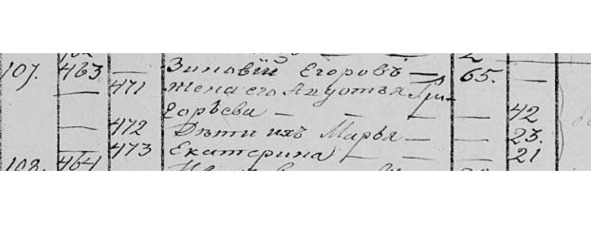 107. 463 — Зиновій Егоровъ — 65. —
— 471 жена его Авдотья Гри-
горьева — — 42
— 472 Дѣти ихъ Марья — — 23.
— 473 Екатерина — — 21
108. 464